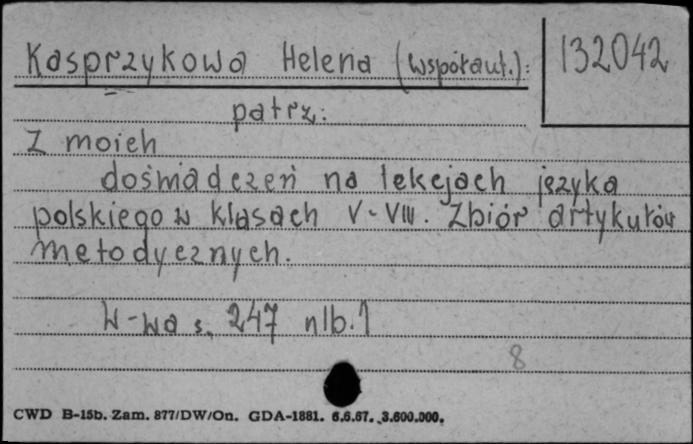 Kasprzykowa Helena (współaut.): 132042
patrz:
Z moich
doświadczeń na lekcjach języka
polskiego w klasach V-VIII. Zbiór artykułów
metodycznych.
W-wa s. 247 nlb. 1
8
CWD B-15b. Zam. 877/DW/On. GDA-1881. 6.6.67. 3.600.000.